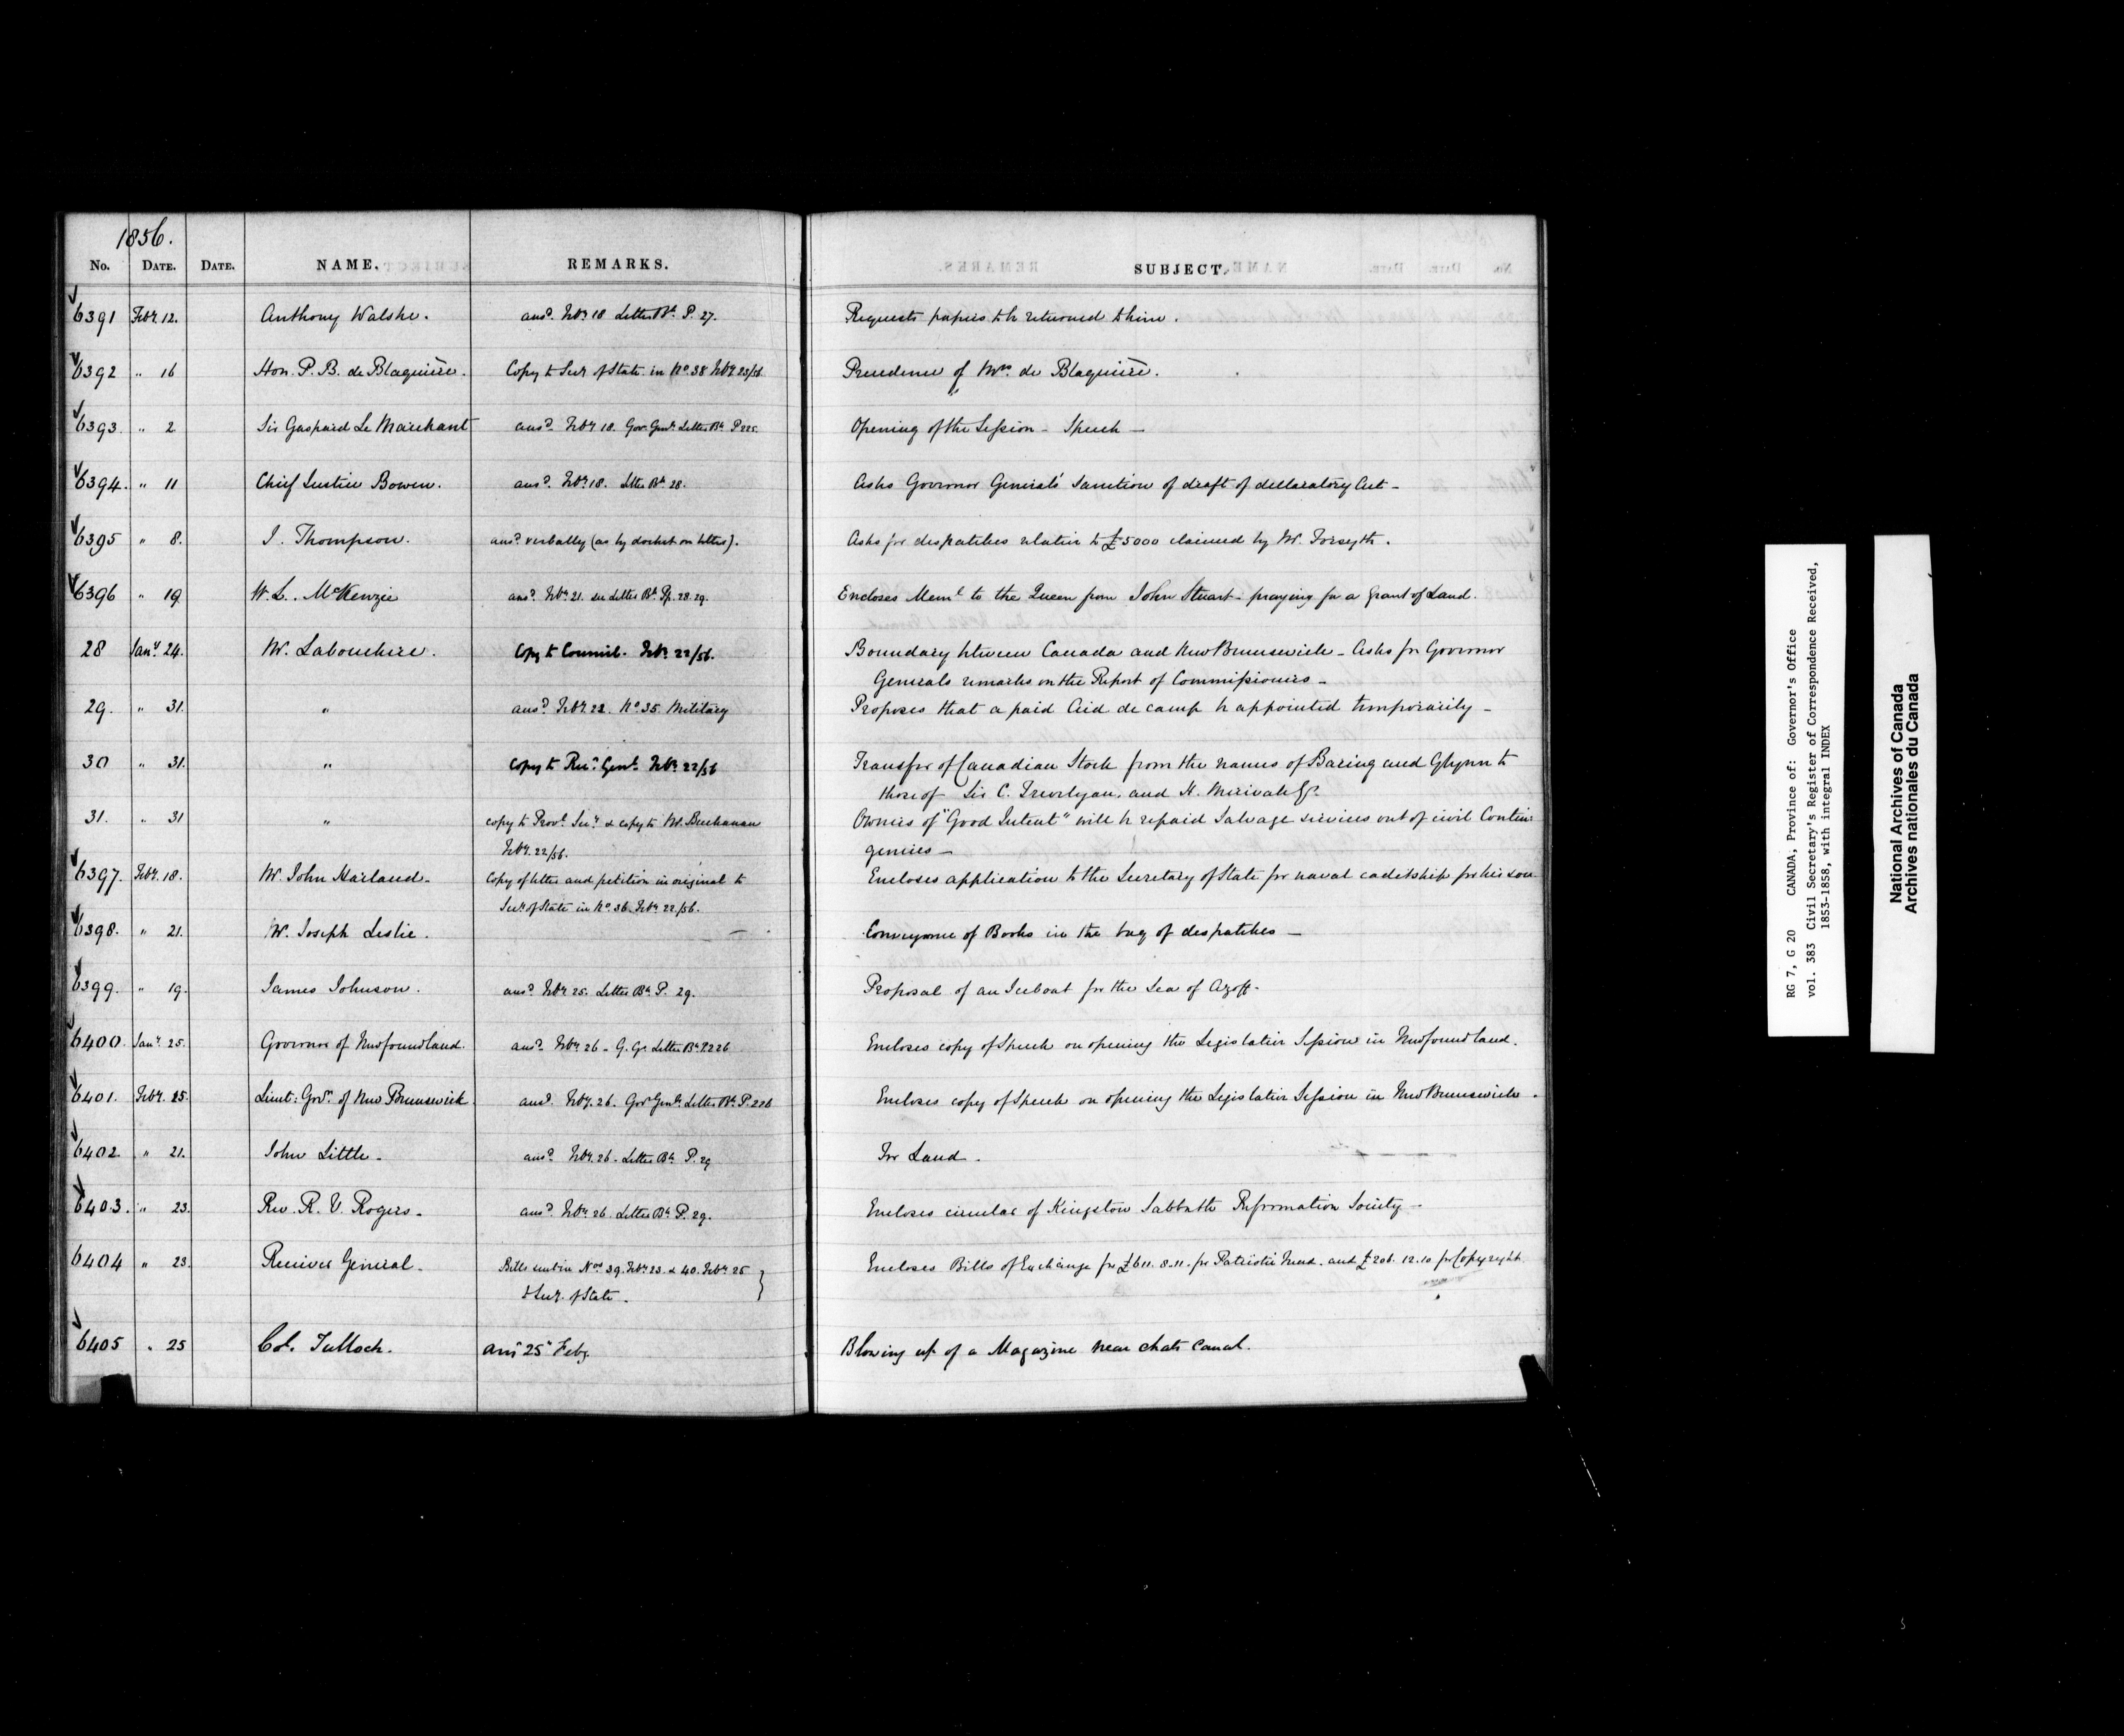 1856.
No. DATE. DATE. NAME. REMARKS. SUBJECT.
6391 Feby 12. Anthony Walshe. ansd. Feby 18 Letter Bk. P. 27. Requests papers to be returned to him.
6392 " 16 Hon. P. B. de Blaquière. Copy to Secy of State in No. 38 Feby 23/56 Precedence of Mrs. de Blaquière.
6393. " 2 Sir Gaspard Le Marchant ansd. Feby 18. Gov. Genl. Letter Bk P 225. Opening of the Session - Speech -
6394. " 11 Chief Justice Bowen. ansd. Feby 18. Letter Bk 28. Asks Governor Generals' sanction of draft of declaratory Act -
6395 " 8. J. Thompson. ansd. verbally (as by docket on letter). Asks for despatches relative to £5000 claimed by Mr. Forsyth.
6396 " 19 W. L. McKenzie ansd. Feby 21. see Letter Bk. Pp. 28. 29. Encloses Meml to the Queen from John Stuart - praying for a grant of Land.
28 Jany. 24. Mr. Labouchere. Copy to Council. Feby 22/56. Boundary between Canada and New Brunswick - Asks for Governor
Generals remarks on the Report of Commissioners -
29. " 31. " ansd. Feby. 22. No. 35 Military Proposes that a paid Aid de camp be appointed temporarily -
30 " 31. " Copy to Recr. Genl. Feby 22/56 Transfer of Canadian Stock from the names of Baring and Glynn to
those of Sir C. Trevelyan, and H. Merivale Esqr.
31. " 31 " copy to Provl. Secy. & copy to Mr. Buchanan Owners of "Good Intent" will be repaid Salvage services out of civil Contin-
Feby. 22/56. gencies -
6397. Feby. 18. Mr. John Harland - Copy of letter and petition in original to Encloses application to the Secretary of State for naval cadetship for his son
Secy of State in No. 36. Feby 22/56.
6398. " 21. Mr. Joseph Leslie. - Conveyance of Books in the bag of despatches -
6399. " 19. James Johnson. ansd. Feby 25. Letter Bk. P. 29. Proposal of an Iceboat for the Sea of Azoff -
6400. Jany. 25. Governor of Newfoundland. ansd. Feby 26 - G. Gs. Letter Bk. P.226 Encloses copy of Speech on opening the Legislative Session in Newfoundland.
6401. Feby. 25. Lieut: Govr. of New Brunswick. ansd. Feby. 26. Govr Genls. Letter Bk. P. 226 Encloses copy of Speech on opening the Legislative Session in New Brunswick.
6402. " 21. John Little. ansd. Feby. 26 - Letter Bk P. 29 For Land.
6403. " 23. Rev. R. V. Rogers. ansd. Feby 26. Letter Bk P. 29. Encloses circular of Kingston Sabbath Reformation Society -
6404 " 23. Receiver General. Bills sent in Nos 39. Feby 23. & 40. Feby 25 } Encloses Bills of Exchange for £611. 8. 11. for Patriotic Fund. and £206. 12. 10 for Copyright
to Secy. of State.
6405 " 25 Col. Tulloch. Ansd 25 Feby. Blowing up of a Magazine near Chats Canal.
RG 7, G 20 CANADA, Province of: Governor's Office
vol. 383 Civil Secretary's Register of Correspondence Received,
1853-1858, with integral INDEX
National Archives of Canada
Archives nationales du Canada